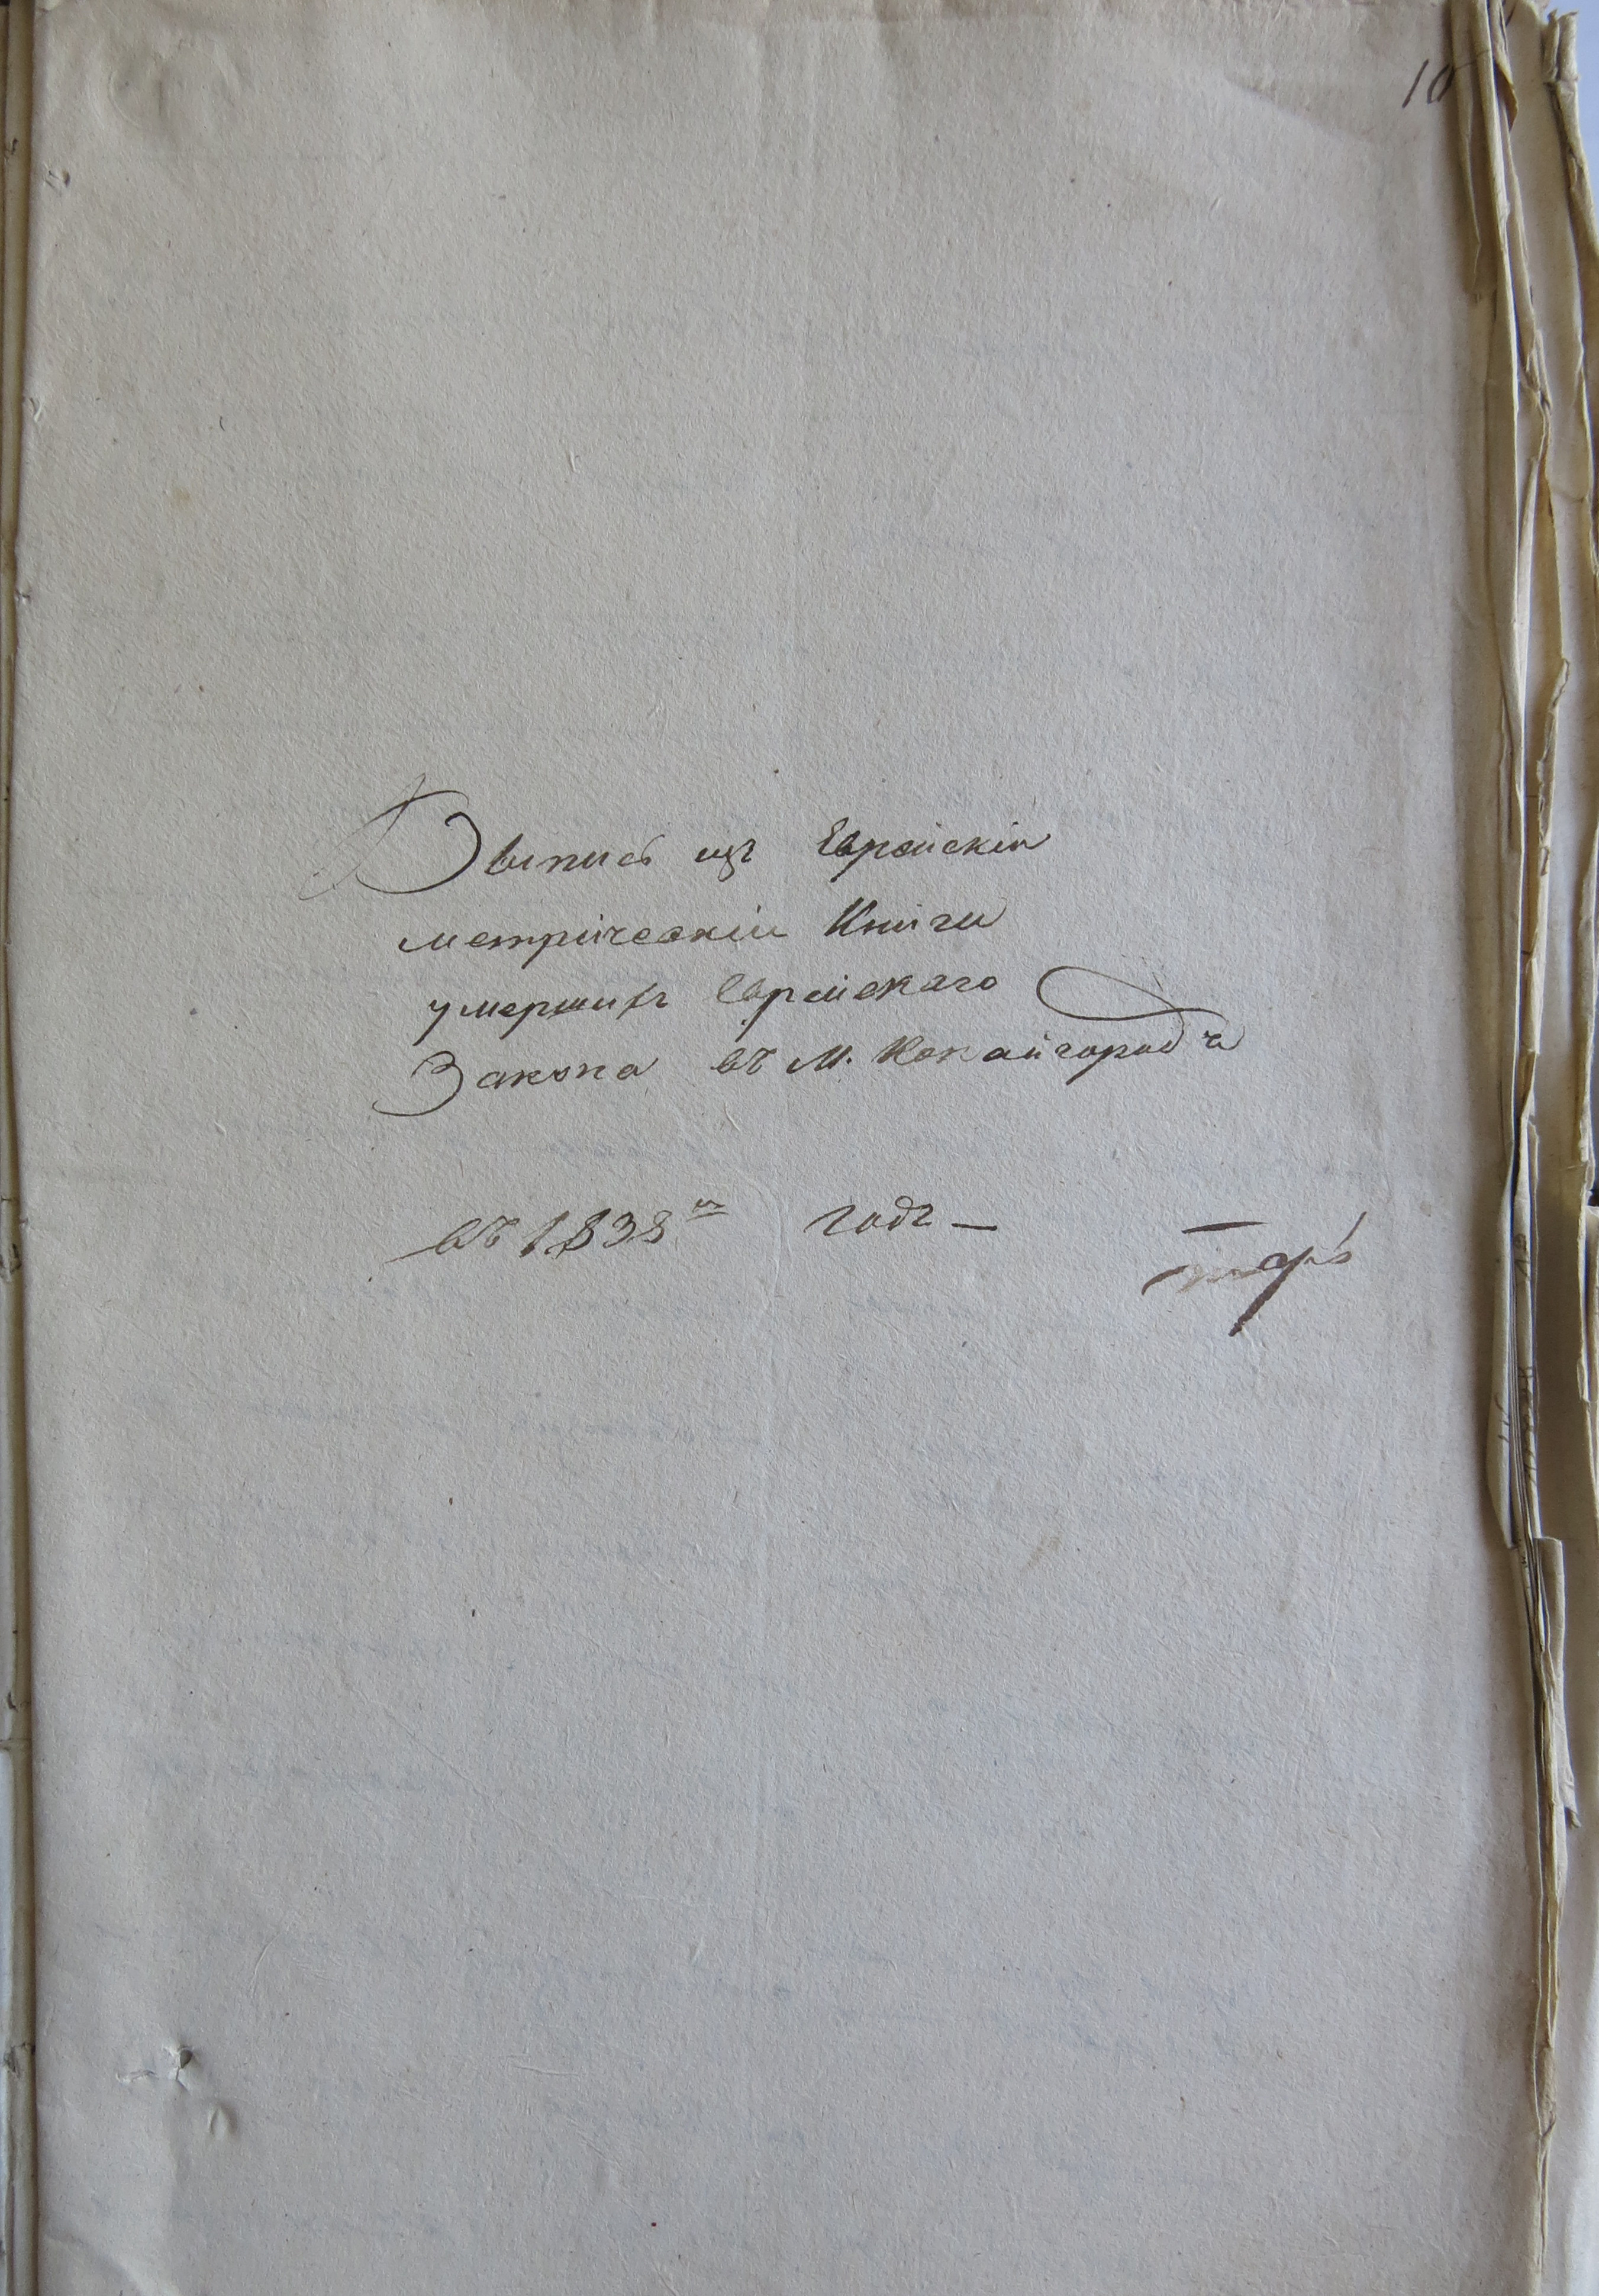 10
Выпись изъ Еврейскіи
метрическіи Книги
умершихъ Еврейскаго
Закона въ М. Копайгородѣ
въ 1838 годъ —